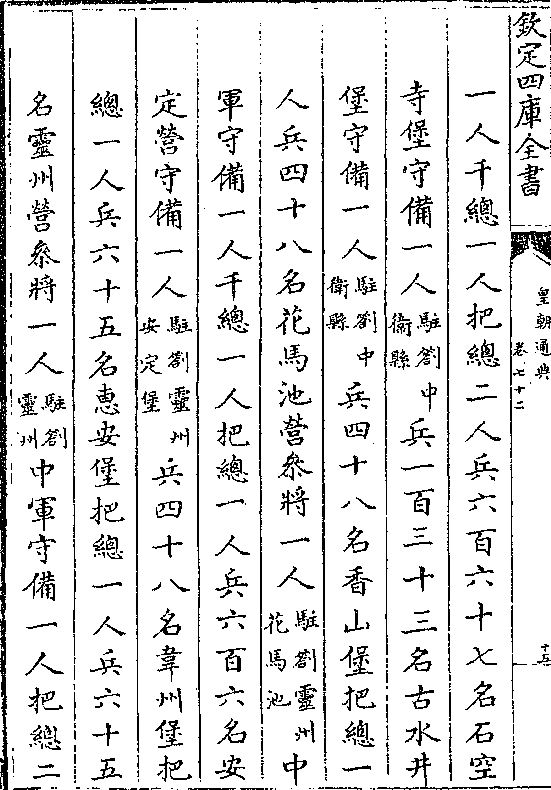 欽定四庫全書
皇朝通典
卷七十二
十五
一人千總一人把總二人兵六百六十七名石空
寺堡守備一人駐劄中衞縣兵一百三十三名古水井
堡守備一人駐劄中衞縣兵四十八名香山堡把總一
人兵四十八名花馬池營叅將一人駐劄靈州花馬池中
軍守備一人千總一人把總一人兵六百六名安
定營守備一人駐劄靈州安定堡兵四十八名韋州堡把
總一人兵六十五名惠安堡把總一人兵六十五
名靈州營叅將一人駐劄靈州中軍守備一人把總二